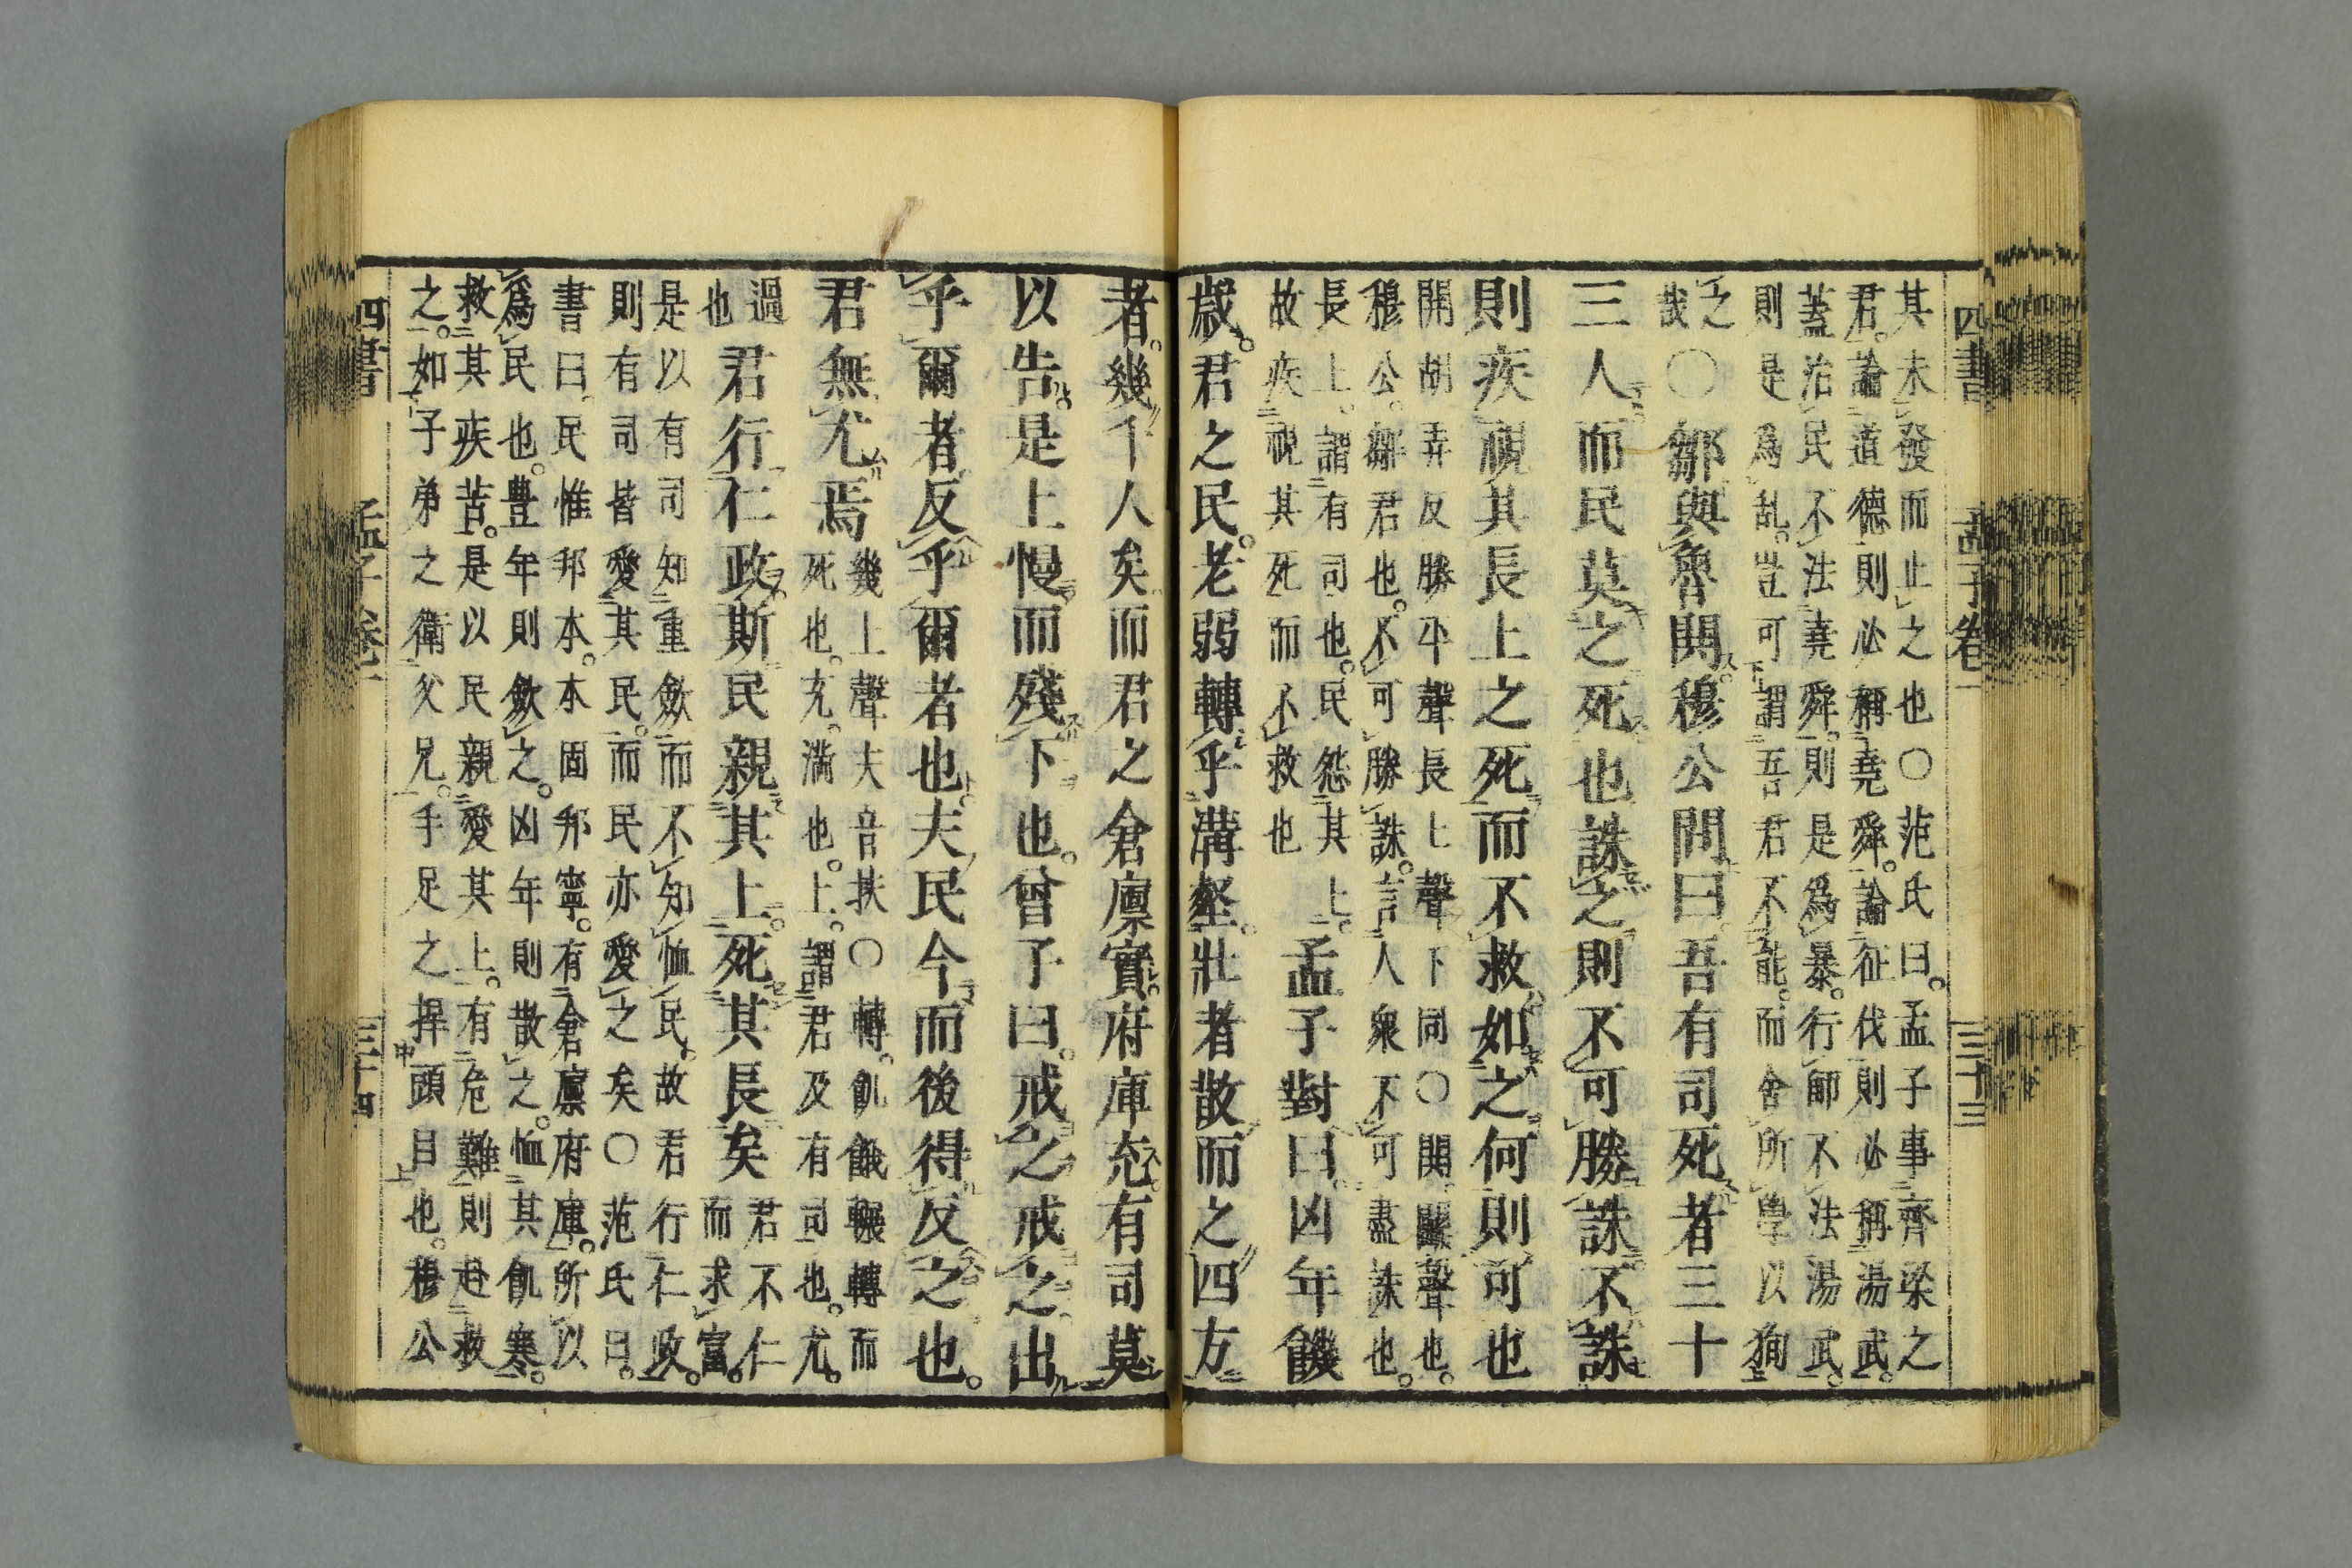 四書 孟子卷一 三十三
其未發而止之也○范氏曰孟子事齊梁之
君論道德則必稱堯舜論征伐則必稱湯武
蓋治民不法堯舜則是爲暴行師不法湯武
則是爲乱豈可謂吾君不能而舍所學以狥
之
哉
○鄒與魯鬨穆公問曰吾有司死者三十
三人而民莫之死也誅之則不可勝誅不誅
則疾視其長上之死而不救如之何則可也
鬨胡弄反勝平聲長上聲下同○鬨鬬聲也
穆公鄒君也不可勝誅言人衆不可盡誅也
長上謂有司也民怨其上
故疾視其死而不救也
孟子對曰凶年饑
歲君之民老弱轉乎溝壑壯者散而之四方
者幾千人矣而君之倉廩實府庫充有司莫
以告是上慢而殘下也曾子曰戒之戒之出
乎爾者反乎爾者也夫民今而後得反之也
君無尤焉
幾上聲夫音扶○轉飢餓輾轉而
死也充滿也上謂君及有司也尤
過
也
君行仁政斯民親其上死其長矣
君不仁
而求富
是以有司知重斂而不知恤民故君行仁政
則有司皆愛其民而民亦愛之矣○范氏曰
書曰民惟邦本本固邦寧有倉廩府庫所以
爲民也豊年則斂之凶年則散之恤其飢寒
救其疾苦是以民親愛其上有危難則赴救
之如子弟之衛父兄手足之捍頭目也穆公
四書 孟子卷一 三十四